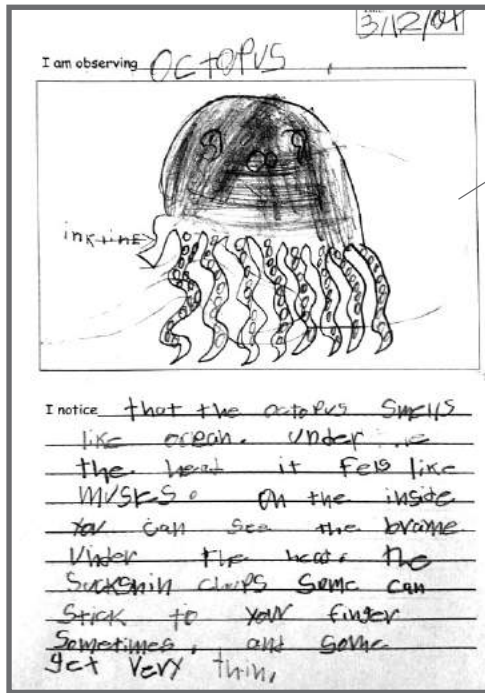 3/12/04
I am observing OCTOPUS
inktine
I notice that the octopus smells
like ocean. under
the head it fels like
muskes. on the inside
you can see the braine
Under the head. the
Suckshin claps some can
Stick to your finger
Sometimes. and some
get very thin.